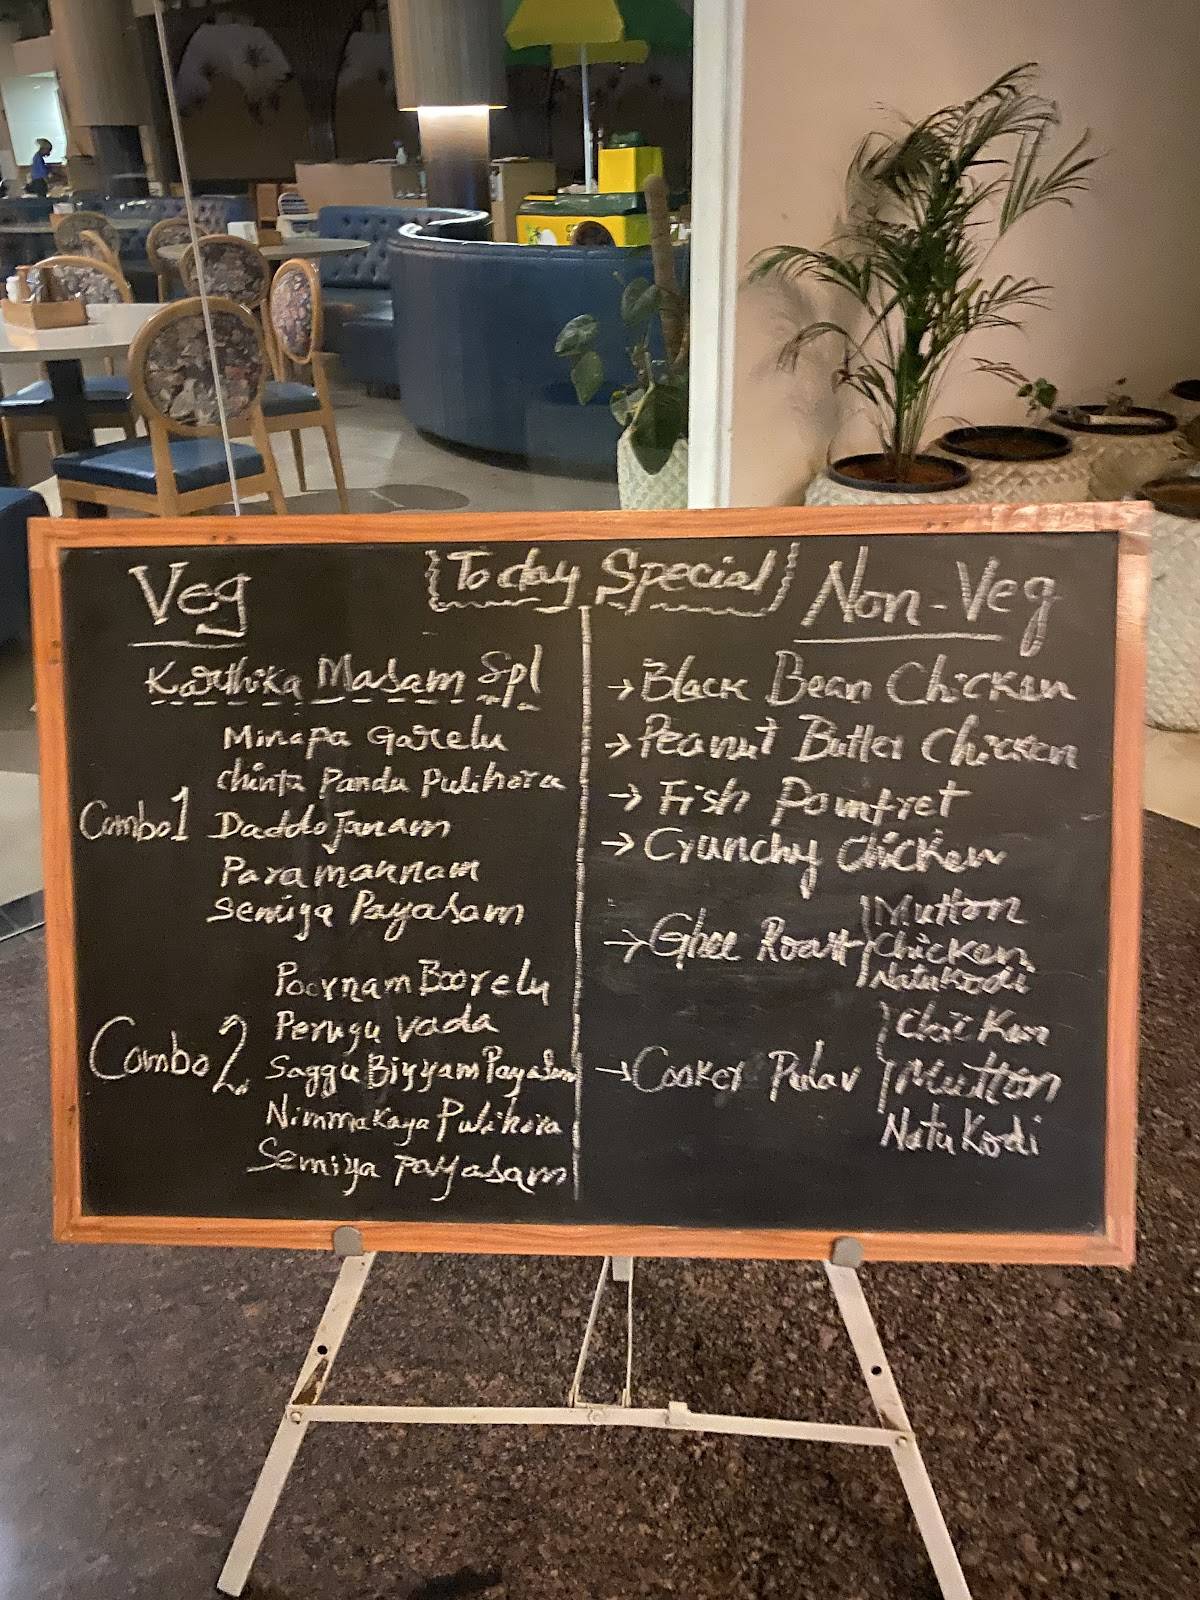 {Today Special}
Veg
Karthika Masam Spl
Combo 1
Minapa Garelu
Chinta Pandu Pulihora
Daddojanam
Paramannam
Semiya Payasam
Combo 2
Poornam Boorelu
Perugu Vada
Saggu Biyyam Payasam
Nimmakaya Pulihora
Semiya Payasam
Non-Veg
→ Black Bean Chicken
→ Peanut Butter Chicken
→ Fish Pomfret
→ Crunchy Chicken
→ Ghee Roast
Mutton
Chicken
Natukodi
→ Cooker Pulav
Chicken
Mutton
Natu Kodi